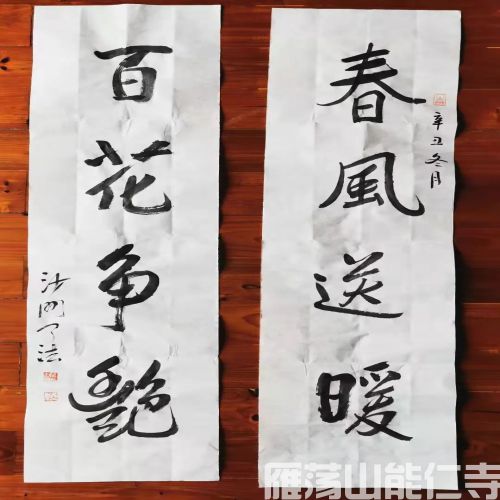 春風送暖
辛丑冬月
百花争艶
沙門了法
雁荡山能仁寺